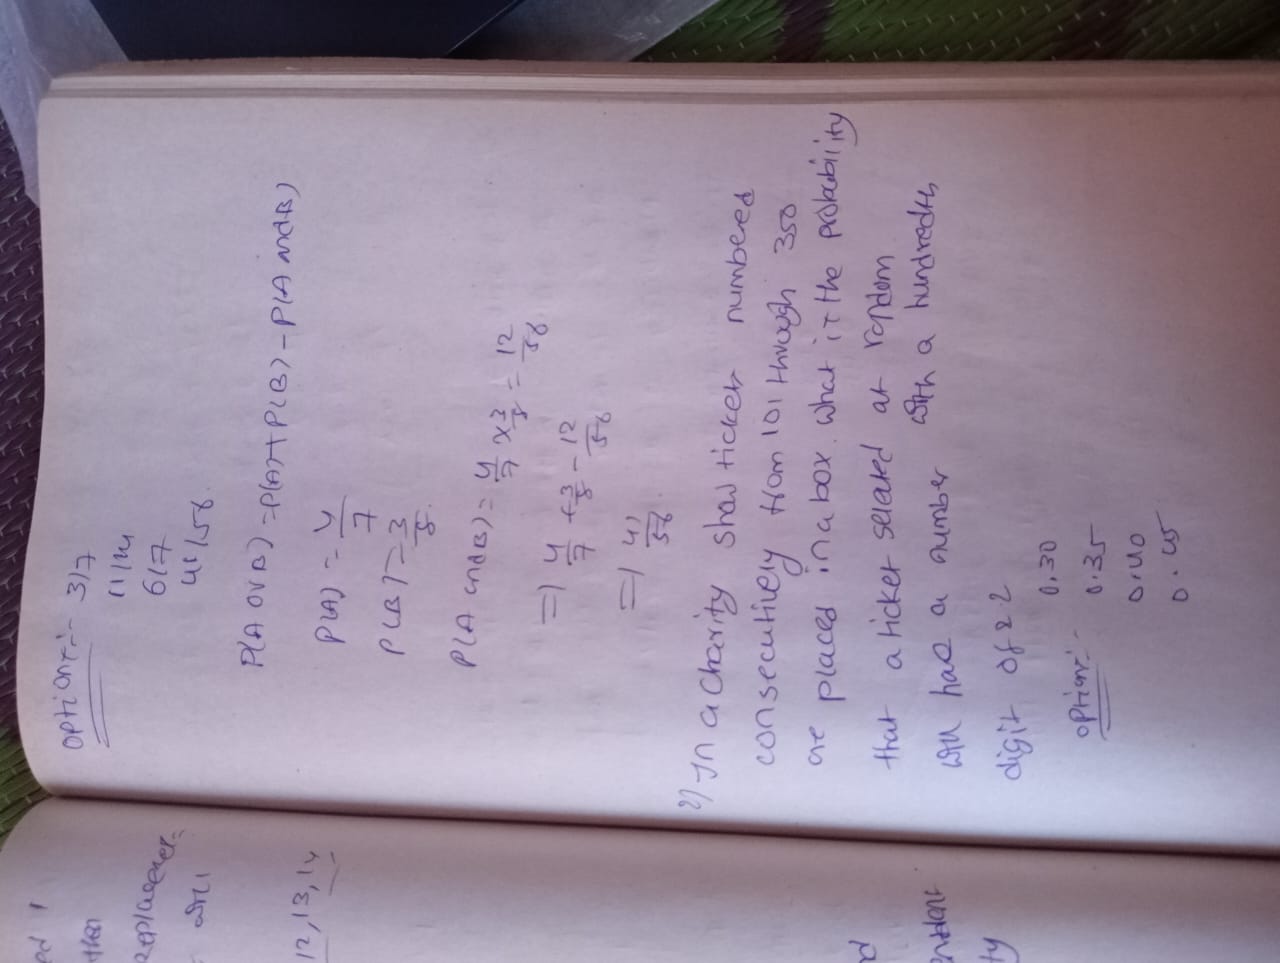 option:- 3/7
11/14
6/7
41/56
P(A or B) = P(A) + P(B) - P(A and B)
P(A) = 4/7
P(B) = 3/8
P(A and B) = 4/7 x 3/8 = 12/56
=) 4/7 + 3/8 - 12/56
=) 41/56
2) In a charity show ticket numbered
consecutively from 101 through 350
are placed in a box. what is the probability
that a ticket selected at random
will has a number with a hundredth
digit of 2?
option:- 0.30
0.35
0.40
0.45
12, 13, 14